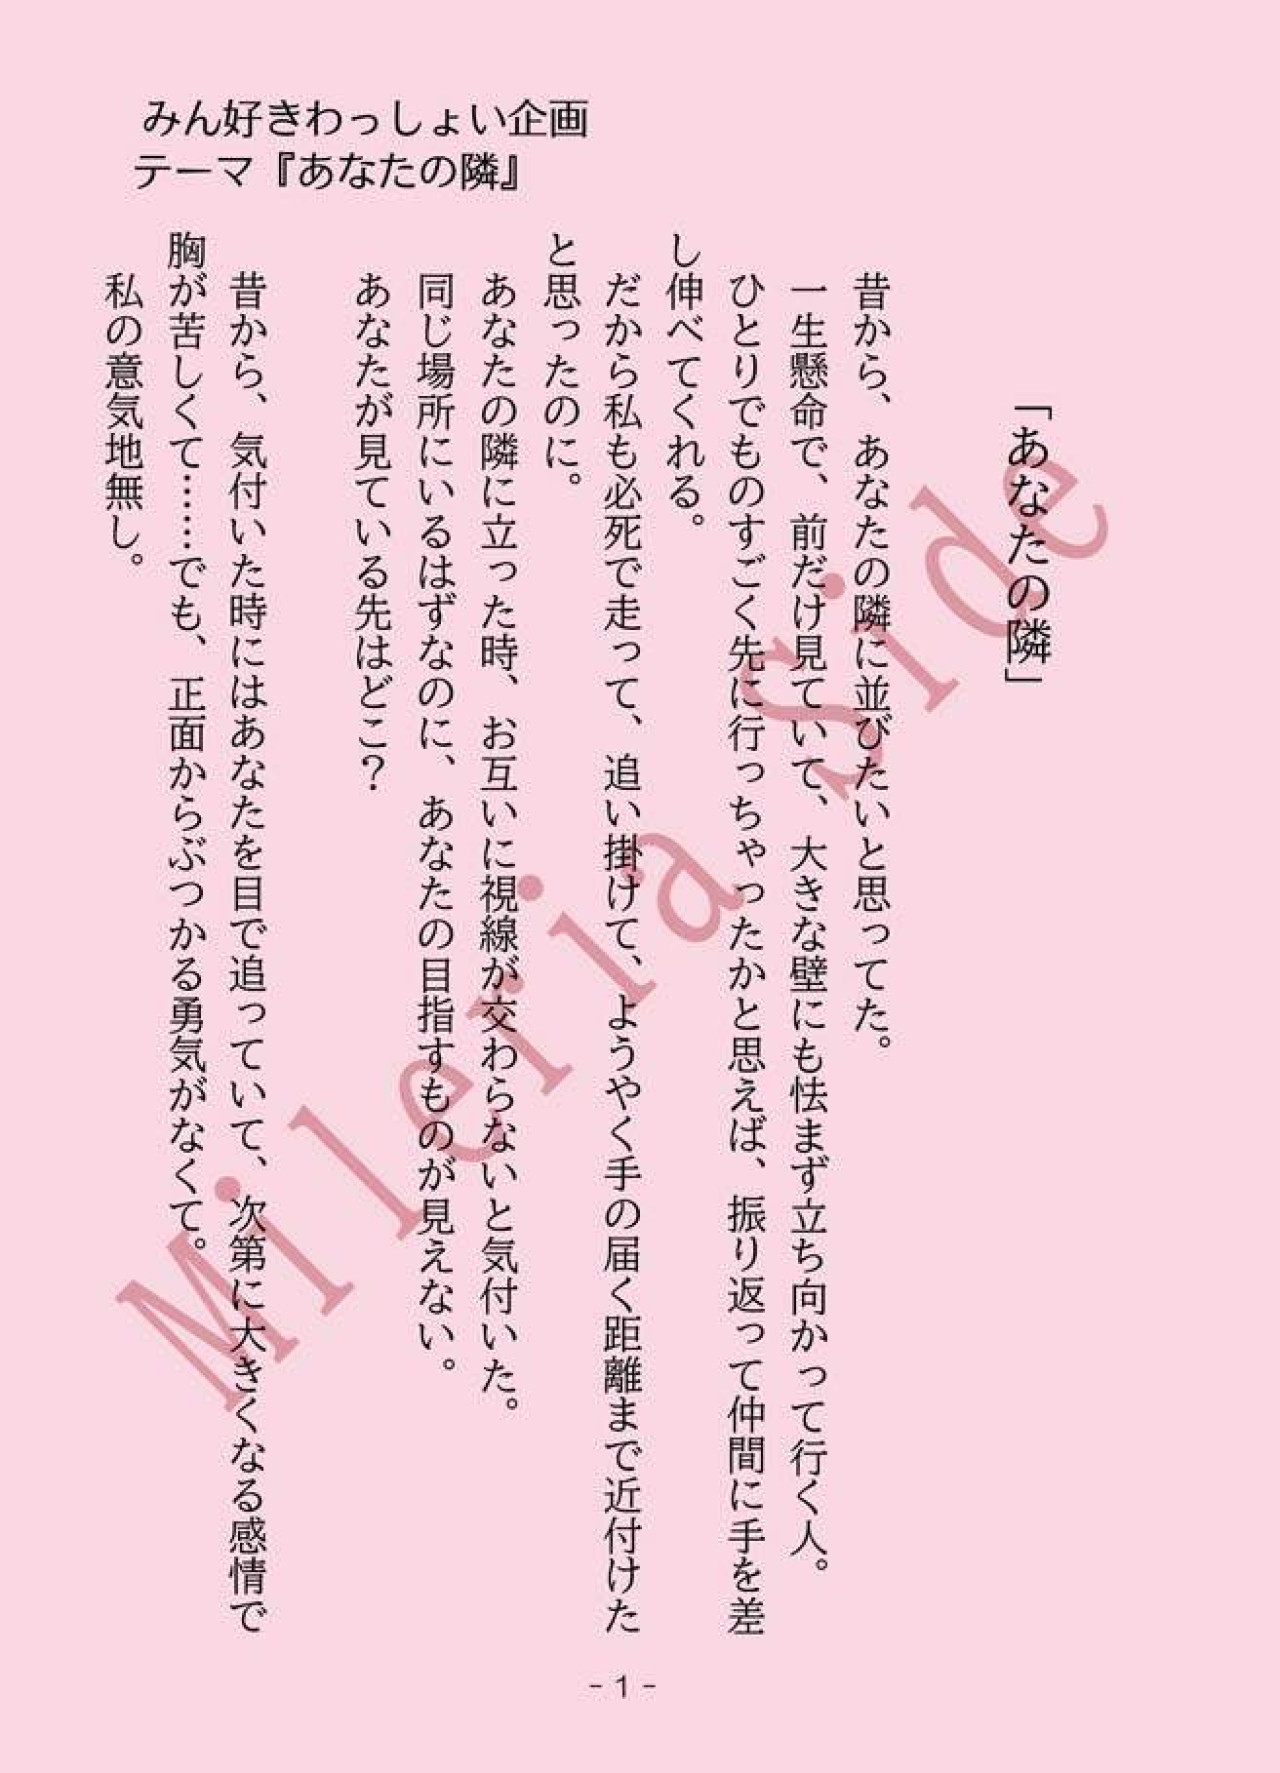 みん好きわっしょい企画
テーマ『あなたの隣』
「あなたの隣」
昔から、あなたの隣に並びたいと思ってた。
一生懸命で、前だけ見ていて、大きな壁にも怯まず立ち向かって行く人。
ひとりでものすごく先に行っちゃったかと思えば、振り返って仲間に手を差
し伸べてくれる。
だから私も必死で走って、追い掛けて、ようやく手の届く距離まで近付けた
と思ったのに。
あなたの隣に立った時、お互いに視線が交わらないと気付いた。
同じ場所にいるはずなのに、あなたの目指すものが見えない。
あなたが見ている先はどこ？
昔から、気付いた時にはあなたを目で追っていて、次第に大きくなる感情で
胸が苦しくて……でも、正面からぶつかる勇気がなくて。
私の意気地無し。
Mileria Side
- 1 -